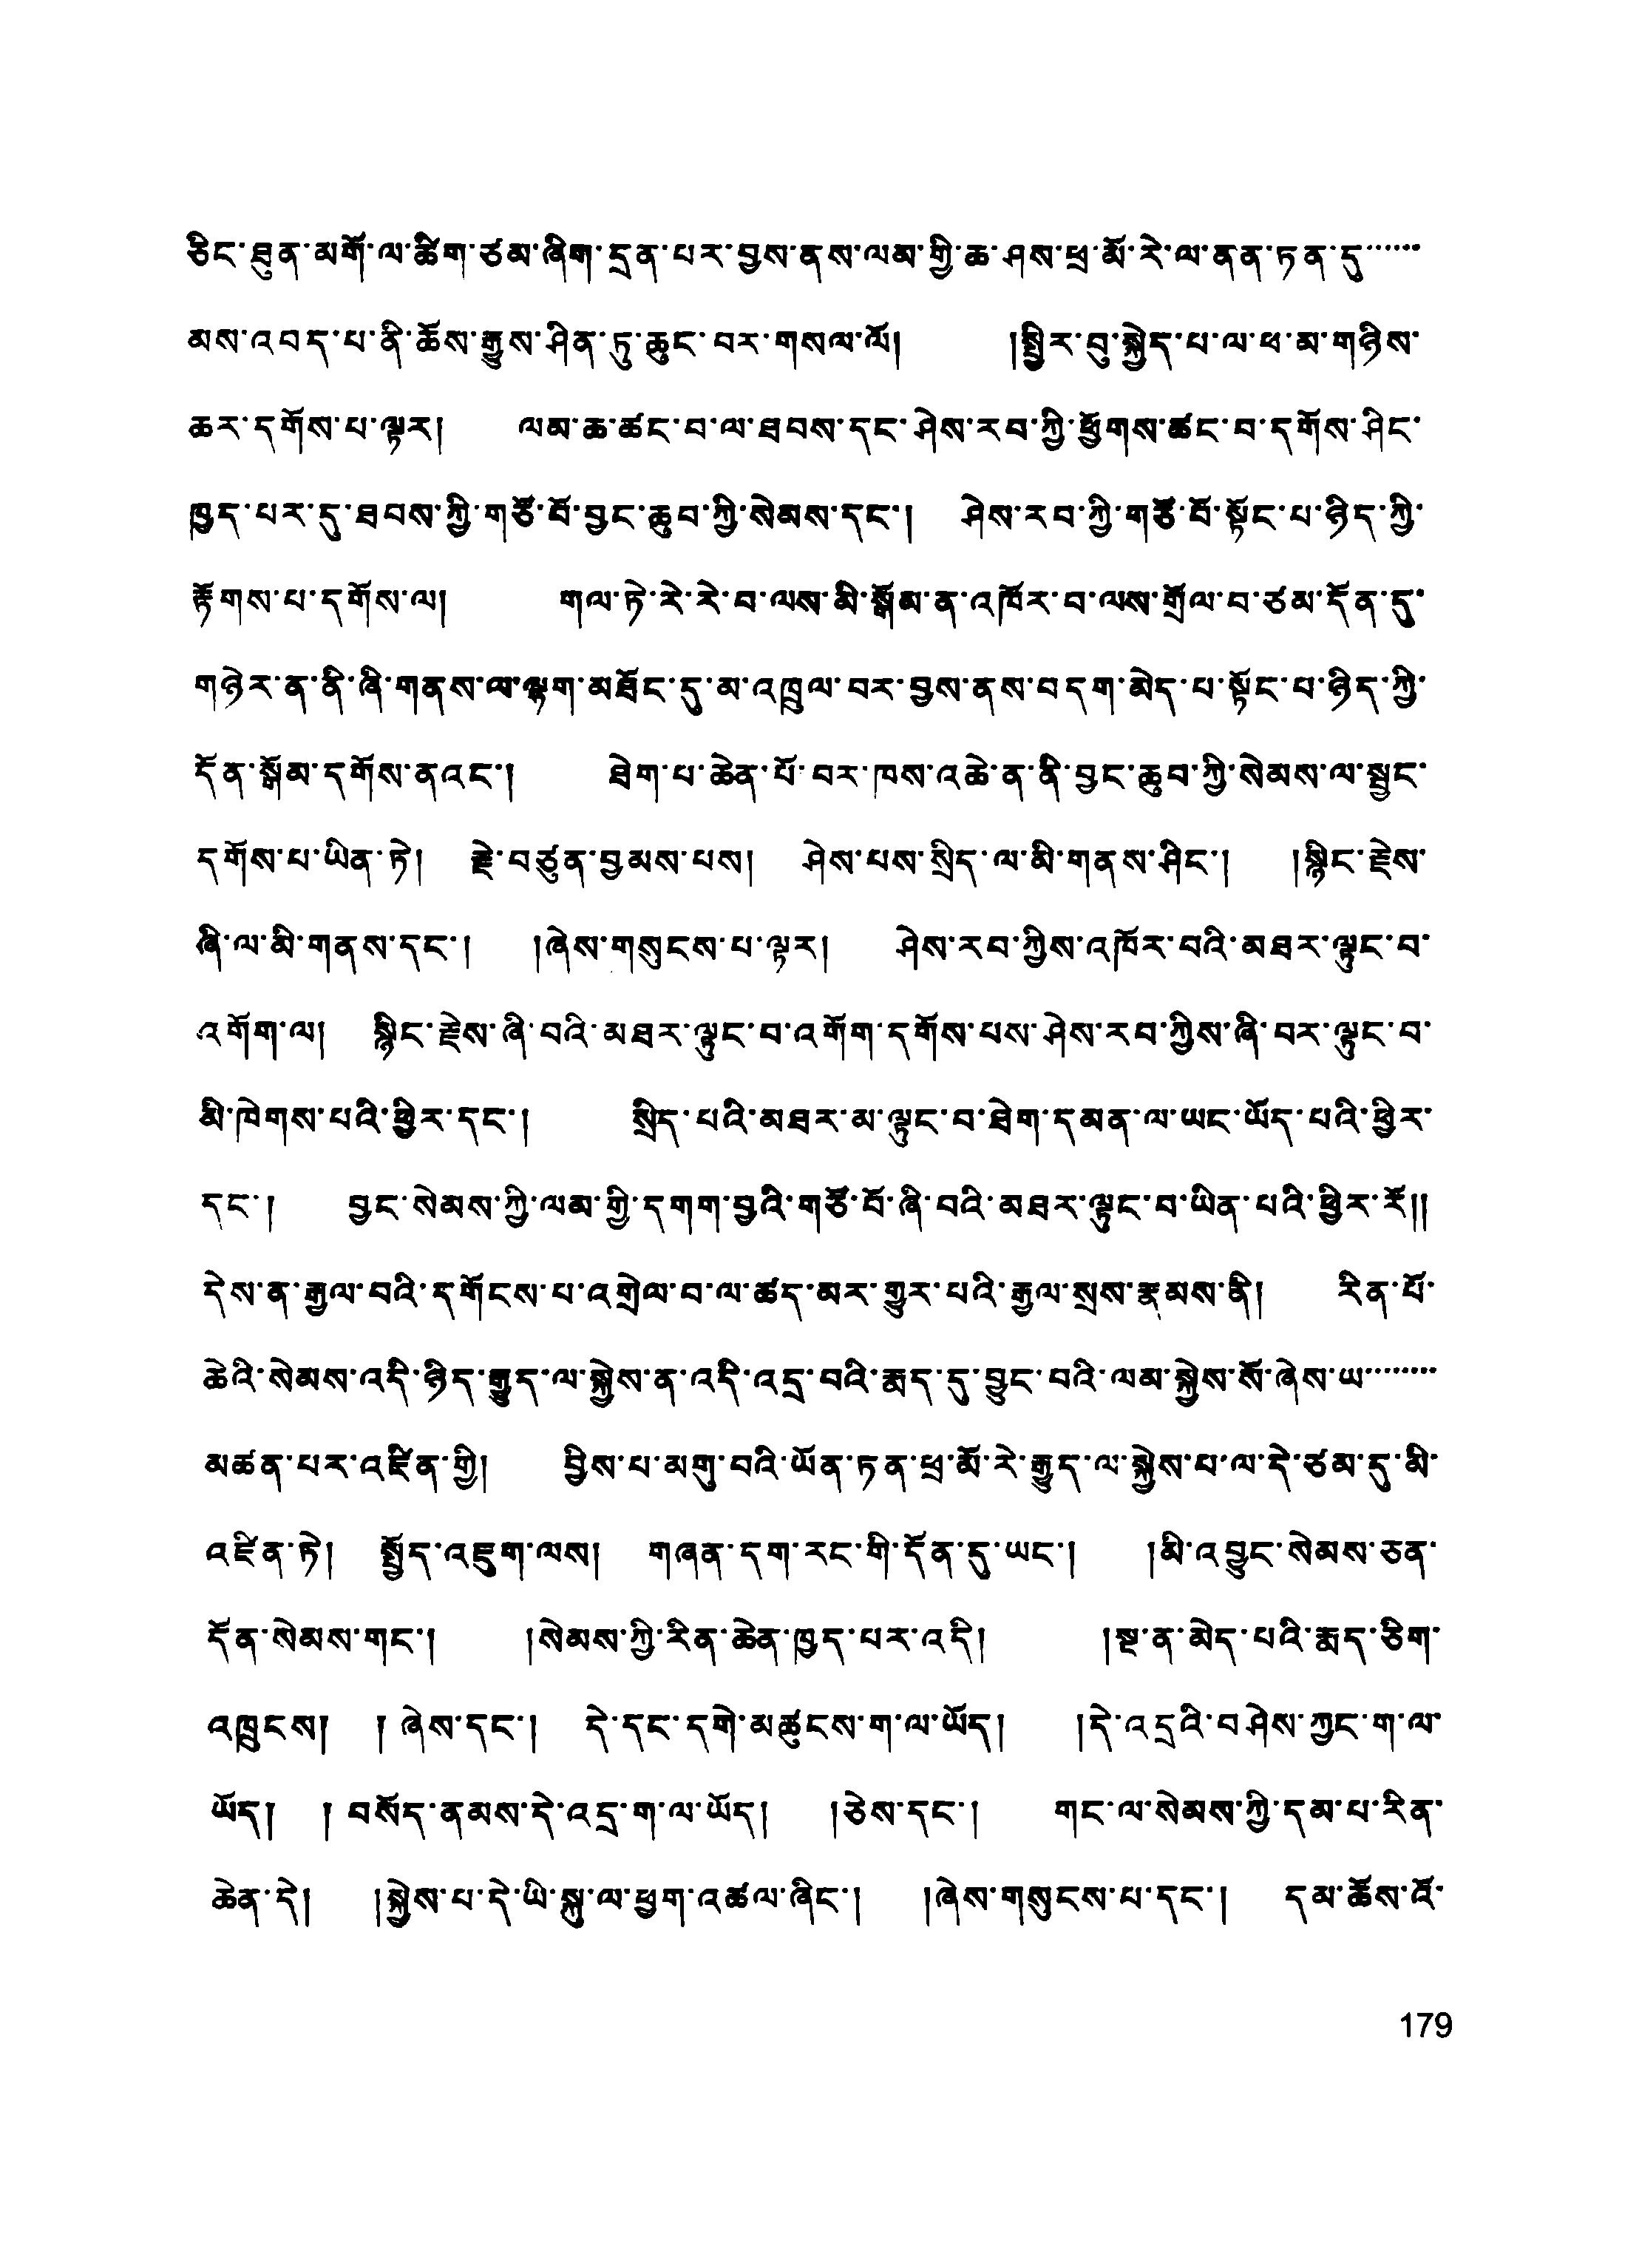 ཅིང་ཐུན་མགོ་ལ་ཚིག་ཙམ་ཞིག་དྲན་པར་བྱས་ནས་ལམ་གྱི་ཆ་ཤས་ཕྲ་མོ་རེ་ལ་ནན་ཏན་དུ་་་་་་
མས་འབད་པ་ནི་ཆོས་རྒྱུས་ཤིན་ཏུ་ཆུང་བར་གསལ་ལོ། །སྤྱིར་བུ་སྐྱེད་པ་ལ་ཕ་མ་གཉིས་
ཆར་དགོས་པ་ལྟར། ལམ་ཆ་ཚང་བ་ལ་ཐབས་དང་ཤེས་རབ་ཀྱི་ཕྱོགས་ཚང་བ་དགོས་ཤིང་
ཁྱད་པར་དུ་ཐབས་ཀྱི་གཙོ་བོ་བྱང་ཆུབ་ཀྱི་སེམས་དང་། ཤེས་རབ་ཀྱི་གཙོ་བོ་སྟོང་པ་ཉིད་ཀྱི་
རྟོགས་པ་དགོས་ལ། གལ་ཏེ་རེ་རེ་བ་ལས་མི་སྒོམ་ན་འཁོར་བ་ལས་གྲོལ་བ་ཙམ་དོན་དུ་
གཉེར་ན་ནི་ཞི་གནས་ལ་ལྷག་མཐོང་དུ་མ་འཁྲུལ་བར་བྱས་ནས་བདག་མེད་པ་སྟོང་པ་ཉིད་ཀྱི་
དོན་སྒོམ་དགོས་ནའང་། ཐེག་པ་ཆེན་པོ་བར་ཁས་འཆེ་ན་ནི་བྱང་ཆུབ་ཀྱི་སེམས་ལ་སྦྱང་
དགོས་པ་ཡིན་ཏེ། རྗེ་བཙུན་བྱམས་པས། ཤེས་པས་སྲིད་ལ་མི་གནས་ཤིང་། །སྙིང་རྗེས་
ཞི་ལ་མི་གནས་དང་། །ཞེས་གསུངས་པ་ལྟར། ཤེས་རབ་ཀྱིས་འཁོར་བའི་མཐར་ལྟུང་བ་
འགོག་ལ། སྙིང་རྗེས་ཞི་བའི་མཐར་ལྟུང་བ་འགོག་དགོས་པས་ཤེས་རབ་ཀྱིས་ཞི་བར་ལྟུང་བ་
མི་ཁེགས་པའི་ཕྱིར་དང་། སྲིད་པའི་མཐར་མ་ལྟུང་བ་ཐེག་དམན་ལ་ཡང་ཡོད་པའི་ཕྱིར་
དང་། བྱང་སེམས་ཀྱི་ལམ་གྱི་དགག་བྱའི་གཙོ་བོ་ཞི་བའི་མཐར་ལྟུང་བ་ཡིན་པའི་ཕྱིར་རོ།།
དེས་ན་རྒྱལ་བའི་དགོངས་པ་འགྲེལ་བ་ལ་ཚད་མར་གྱུར་པའི་རྒྱལ་སྲས་རྣམས་ནི། རིན་པོ་
ཆེའི་སེམས་འདི་ཉིད་རྒྱུད་ལ་སྐྱེས་ན་འདི་འདྲ་བའི་རྨད་དུ་བྱུང་བའི་ལམ་སྐྱེས་སོ་ཞེས་ཡ་་་་་་་་
མཚན་པར་འཛིན་གྱི། བྱིས་པ་མགུ་བའི་ཡོན་ཏན་ཕྲ་མོ་རེ་རྒྱུད་ལ་སྐྱེས་པ་ལ་དེ་ཙམ་དུ་མི་
འཛིན་ཏེ། སྤྱོད་འཇུག་ལས། གཞན་དག་རང་གི་དོན་དུ་ཡང་། །མི་འབྱུང་སེམས་ཅན་
དོན་སེམས་གང་། །སེམས་ཀྱི་རིན་ཆེན་ཁྱད་པར་འདི། །སྔ་ན་མེད་པའི་རྨད་ཅིག་
འཁྲུངས། ། ཞེས་དང་། དེ་དང་དགེ་མཚུངས་ག་ལ་ཡོད། །དེ་འདྲའི་བཤེས་ཀྱང་ག་ལ་
ཡོད། ། བསོད་ནམས་དེ་འདྲ་ག་ལ་ཡོད། །ཅེས་དང་། གང་ལ་སེམས་ཀྱི་དམ་པ་རིན་
ཆེན་དེ། །སྐྱེས་པ་དེ་ཡི་སྐུ་ལ་ཕྱག་འཚལ་ཞིང་། །ཞེས་གསུངས་པ་དང་། དམ་ཆོས་འོ་
179